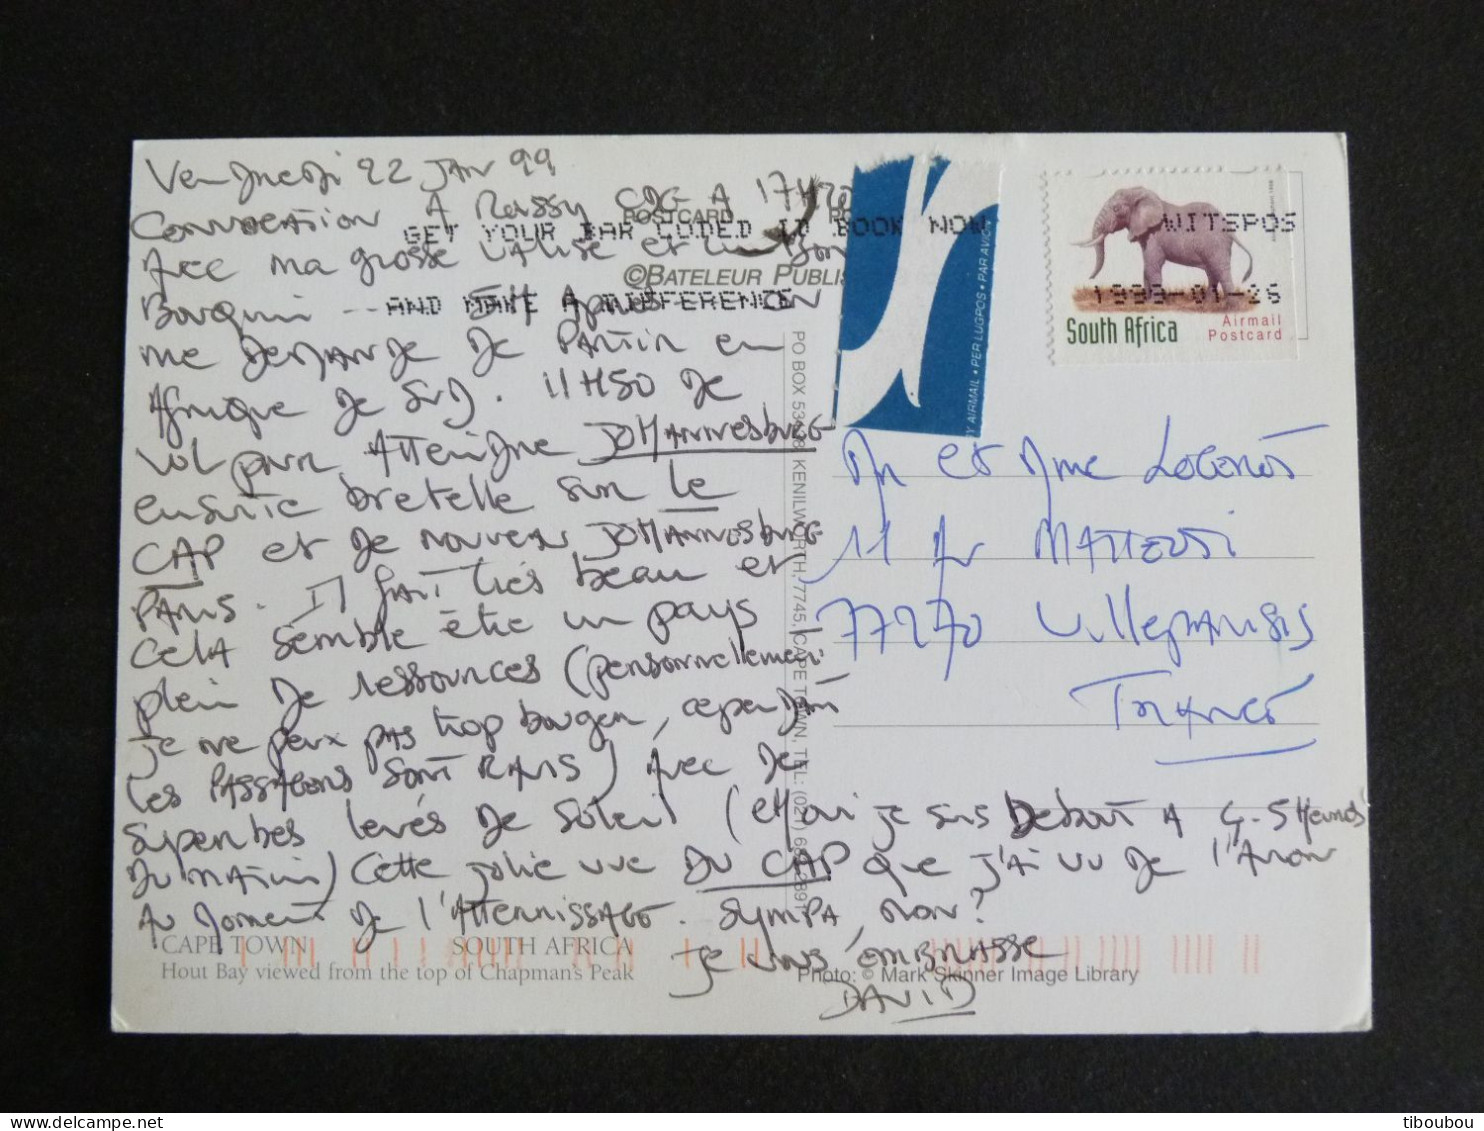 Vendredi 22 JAN 99
Convocation A Roissy CDG A 17H20
Avec ma grosse valise et un bon
Bouquin -- Et Après on
me demande de Partir en
Afrique de Sud. 11H50 de
vol pour Atteindre JOHANNESburg
ensuite bretelle sur Le
CAP et de nouveau JOHANNESburg
PARIS. Il fait très beau et
cela semble être un pays
plein de ressources (personnellement
je ne peux pas trop bouger, cependant
les PASSAGERS SONT RAVIS) Avec de
superbes levés de soleil (et oui je suis Debout A 4-5 Heures
du matin) Cette jolie vue DU CAP que j'ai vu de l'Avion
Au moment de l'Atterrissage. Sympa, non?
Je vous embrasse
DAVID
POSTCARD
GET YOUR BAR CODED ID BOOK NOW
AND MAKE A DIFFERENCE
©BATELEUR PUBLIS
WITSPOS
1999-01-26
South Africa
Airmail
Postcard
Y AIRMAIL • PER LUGPOS • PAR AVION
PO BOX 53 KENILWORTH, 7745, CAPE TOWN, TEL: (021)
Mr et Mme
11 Av MATTEOTTI
77270 Villeparisis
FRANCE
CAPE TOWN SOUTH AFRICA
Hout Bay viewed from the top of Chapman's Peak
Photo: © Mark Skinner Image Library
tiboubou